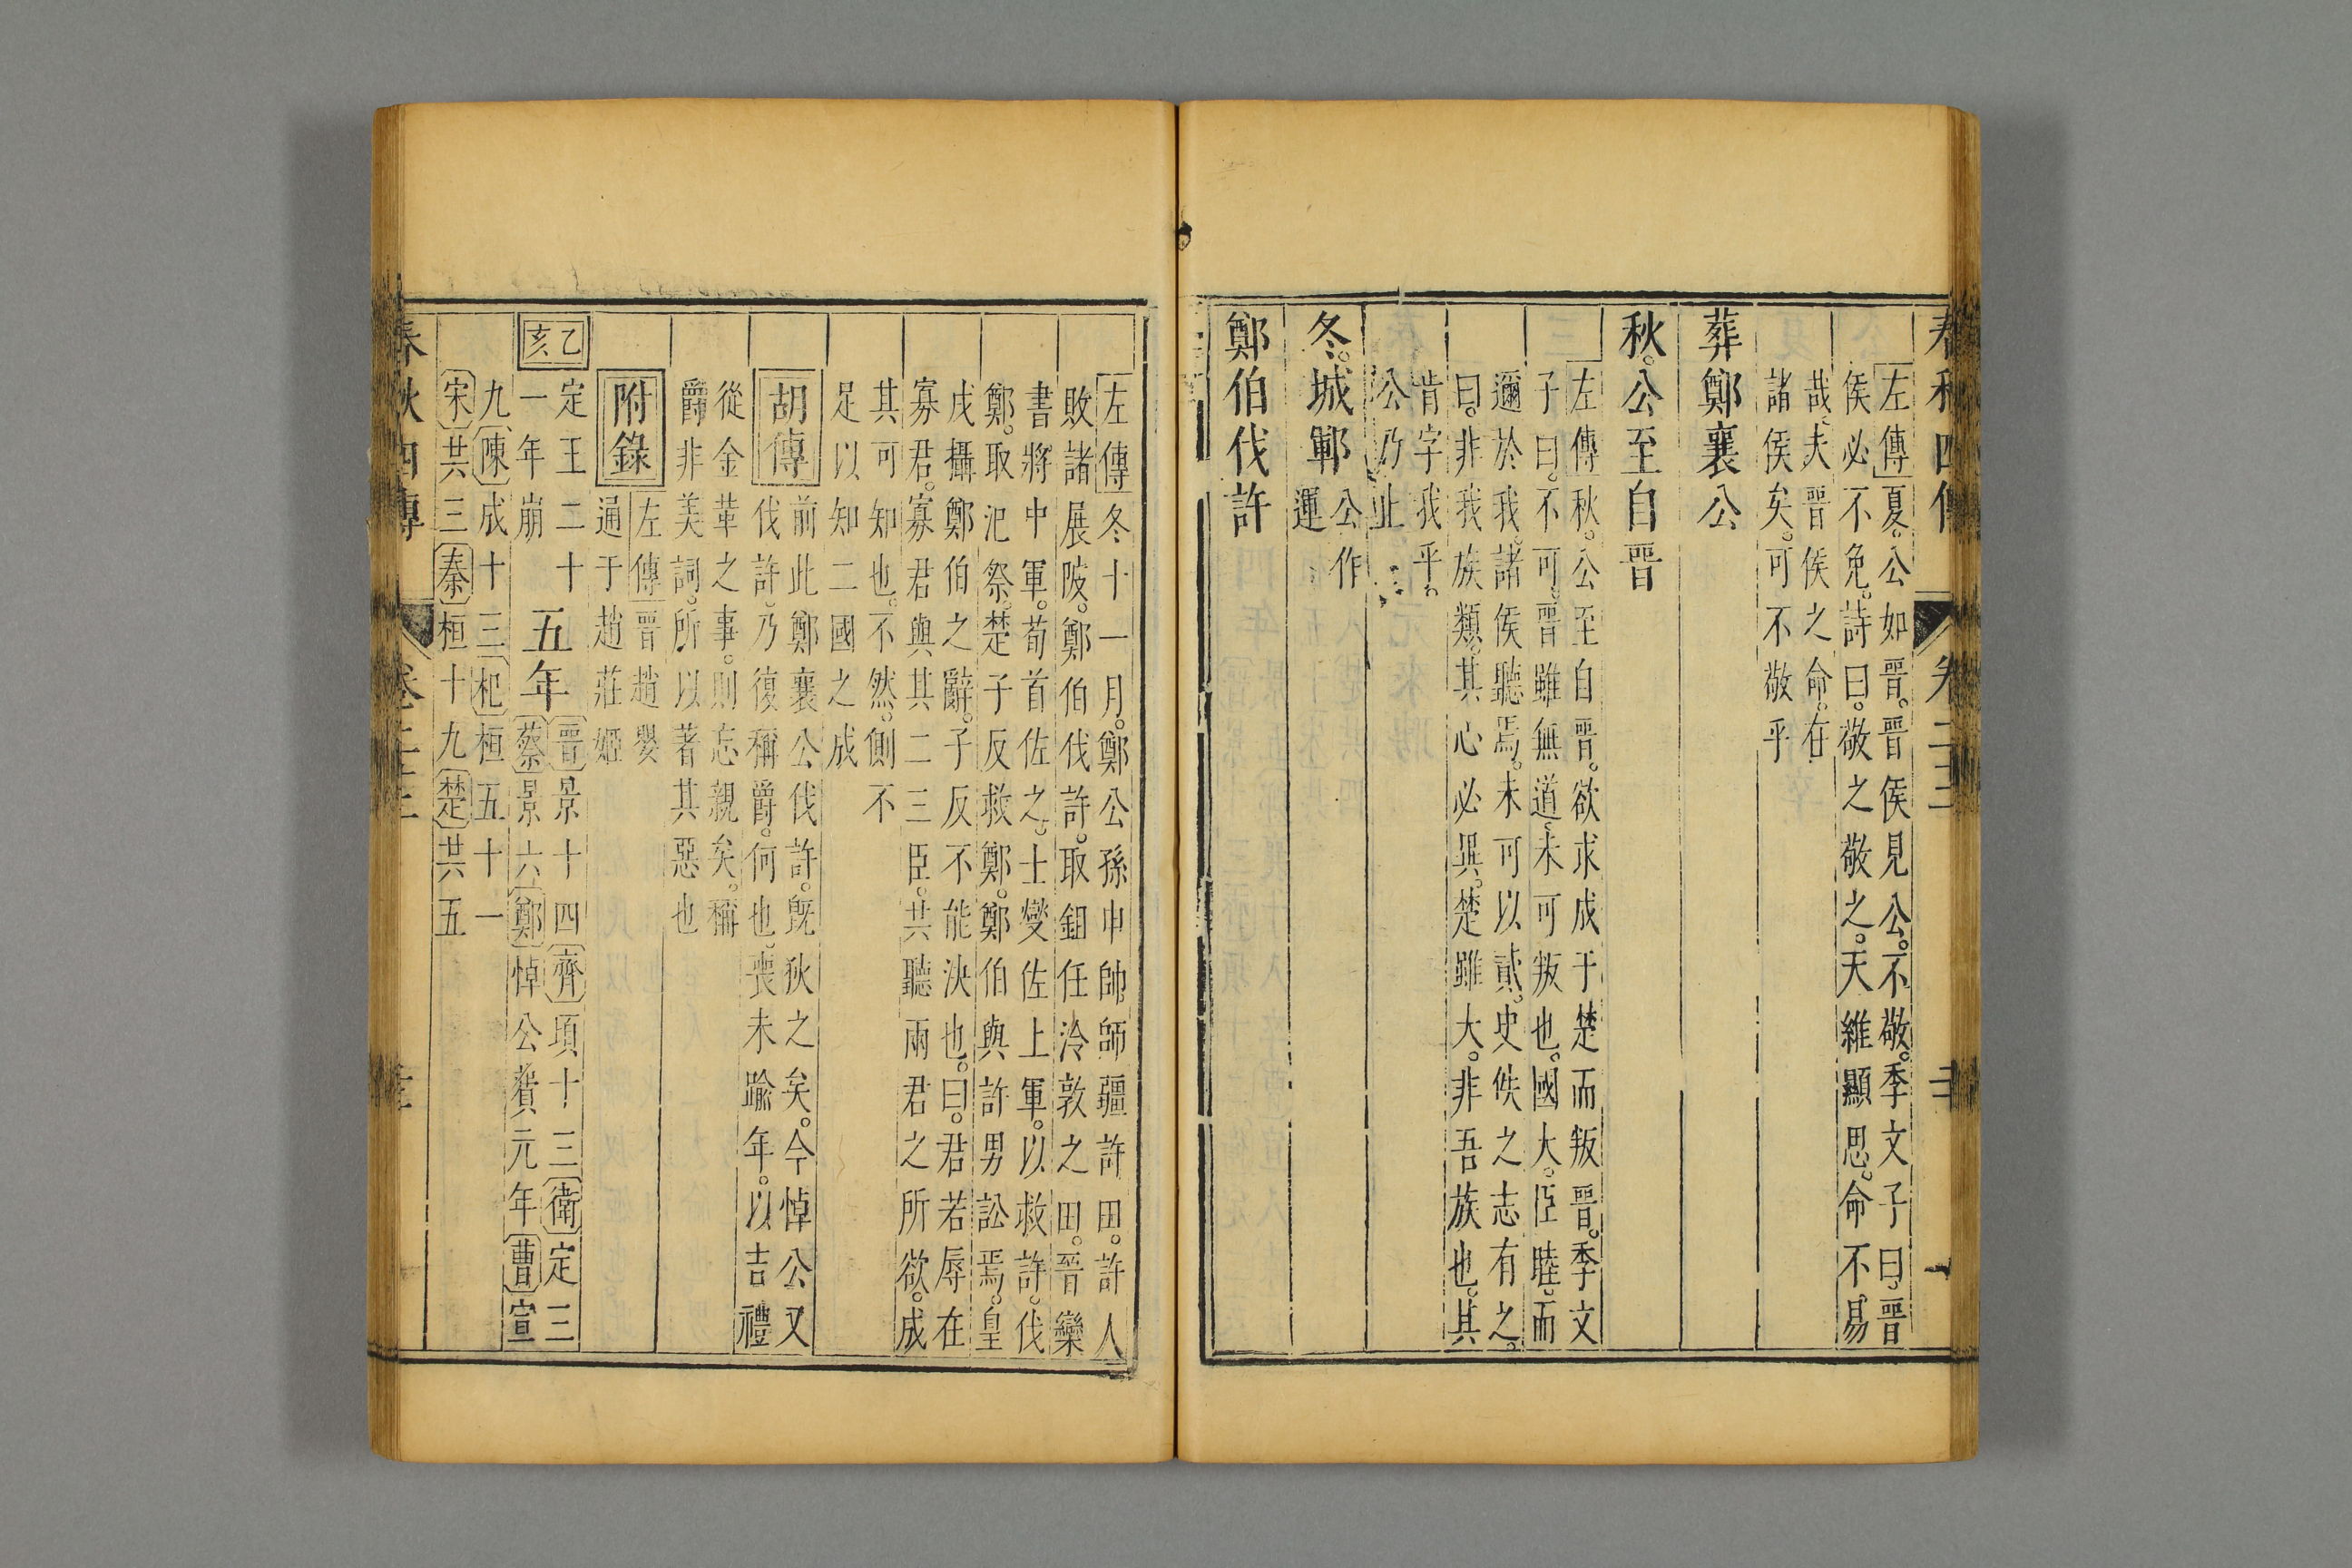 左傳夏。公如晉。晉侯見公。不敬。季文子曰。晉
侯必不免。詩曰。敬之敬之。天維顯思。命不易
哉。夫晉侯之命。在
諸侯矣。可不敬乎
葬鄭襄公
秋。公至自晉
左傳秋。公至自晉。欲求成于楚而叛晉。季文
子曰。不可。晉雖無道。未可叛也。國大。臣睦。而
邇於我。諸侯聽焉。未可以貳。史佚之志有之。
曰。非我族類。其心必異。楚雖大。非吾族也。其
肯字我乎。
公乃止
冬。城鄆
公作
運
鄭伯伐許
左傳冬十一月。鄭公孫申帥師疆許田。許人
敗諸展陂。鄭伯伐許。取鉏任泠敦之田。晉欒
書將中軍。荀首佐之。士燮佐上軍。以救許。伐
鄭。取汜祭。楚子反救鄭。鄭伯與許男訟焉。皇
戌攝鄭伯之辭。子反不能決也。曰。君若辱在
寡君。寡君與其二三臣。共聽兩君之所欲。成
其可知也。不然。側不
足以知二國之成
胡傳
前此鄭襄公伐許。旣狄之矣。今悼公又
伐許。乃復稱爵。何也。喪未踰年。以吉禮
從金革之事。則忘親矣。稱
爵非美詞。所以著其惡也
附錄
左傳晉趙嬰
通于趙莊姬
乙亥
定王二十
一年崩
五年
晉景十四齊頃十三衛定三
蔡景六鄭悼公費元年曹宣
九陳成十三杞桓五十一
宋共三秦桓十九楚共五
春秋四傳